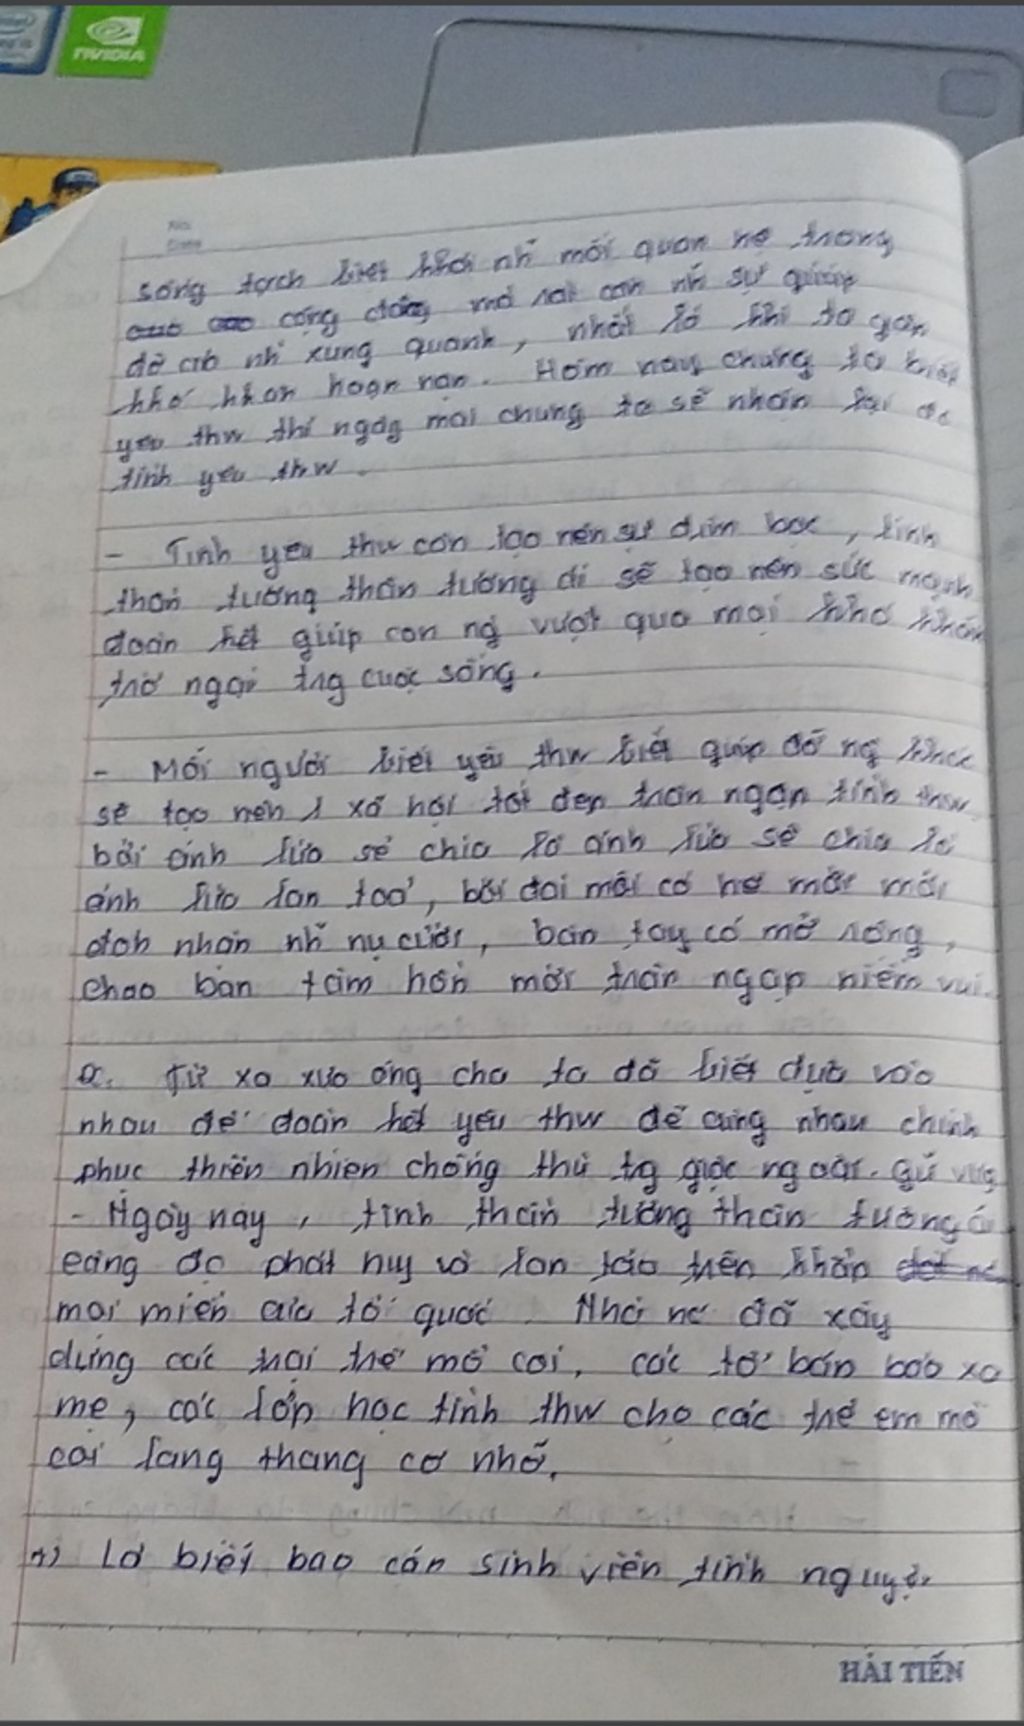 NVIDIA
No.
Date
sống tách biệt khỏi nh~ mối quan hệ trong
cộng đồng mà rất cần nh~ sự giúp
đỡ của nh~ xung quanh, nhất là khi ta gặp
khó khăn hoạn nạn. Hôm nay chúng ta biết
yêu thw thì ngày mai chúng ta sẽ nhận lại đc
tình yêu thw.
- Tình yêu thw còn tạo nên sự đùm bọc, tinh
thần tương thân tương ái sẽ tạo nên sức mạnh
đoàn kết giúp con ng` vượt qua mọi khó khăn
trở ngại trg cuộc sống.
- Mỗi người biết yêu thw biết giúp đỡ ng` khác
sẽ tạo nên 1 xã hội tốt đẹp tràn ngập tình thw
bởi ánh lửa sẻ chia là ánh lửa sẻ chia là
ánh lửa lan toả, bởi đôi môi có hé mở mới
đón nhận nh~ nụ cười, bàn tay có mở rộng,
trao ban tâm hồn mới tràn ngập niềm vui.
2. Từ xa xưa ông cha ta đã biết dựa vào
nhau để đoàn kết yêu thw để cùng nhau chinh
phục thiên nhiên chống thù tg giặc ngoài. Giữ vững
- Ngày nay, tinh thần tương thân tương ái
càng đc phát huy và lan toả trên khắp
mọi miền của tổ quốc. Nhà nc đã xây
dựng các trại trẻ mồ côi, các tờ bán báo xa
mẹ, các lớp học tình thw cho các trẻ em mồ
côi lang thang cơ nhỡ.
+) Là biết bao cán sinh viên tình nguyện
HẢI TIẾN